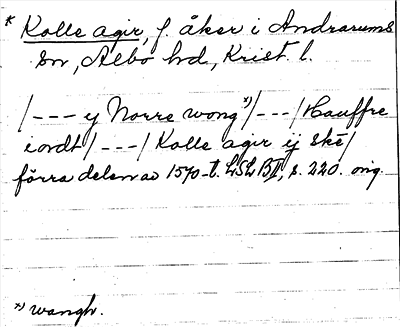 * Kolle agir, f. åker i Andrarums
sn, Albo hd, Krist. l.
/--- ij Norre wong *)/---/Hauffre
iordt/---/Kolle agir ij skē/
förra delen av 1570-t. LSLB II, s. 220. orig.
*) wangh.